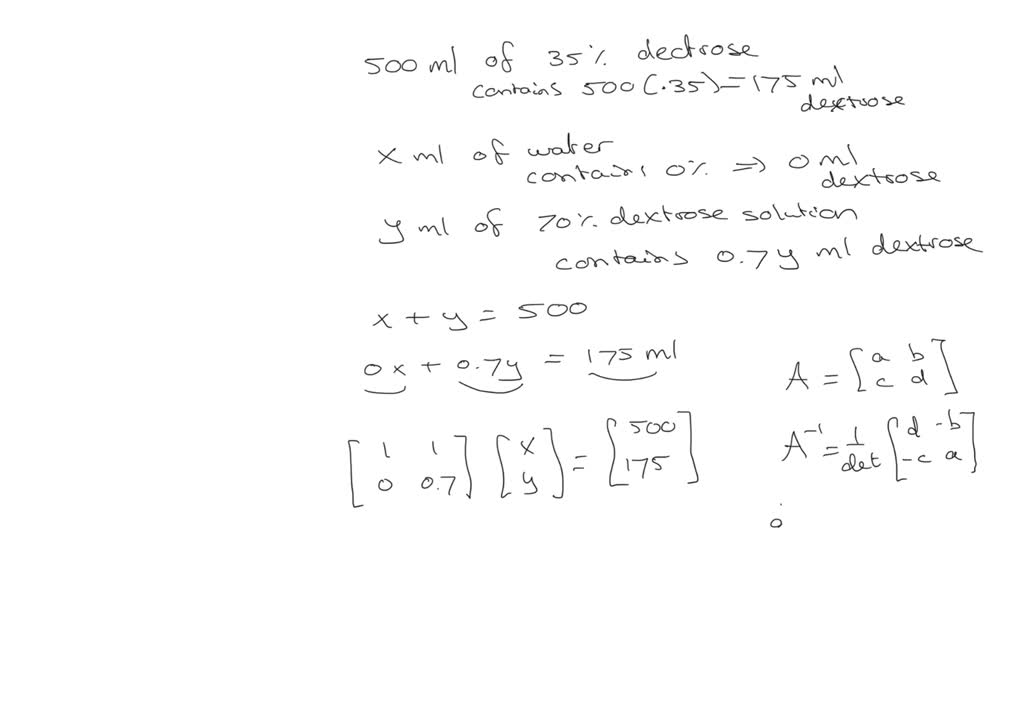 500 ml of 35% dectrose
contains 500 (.35) = 175 ml
dextrose
x ml of water
contains 0% ⇒ 0 ml
dextrose
y ml of 70% dextrose solution
contains 0.7y ml dextrose
x + y = 500
0x + 0.7y = 175 ml
[1 1
0 0.7] [x
y] = [500
175]
A = [a b
c d]
A⁻¹ = 1/det [d -b
-c a]
0